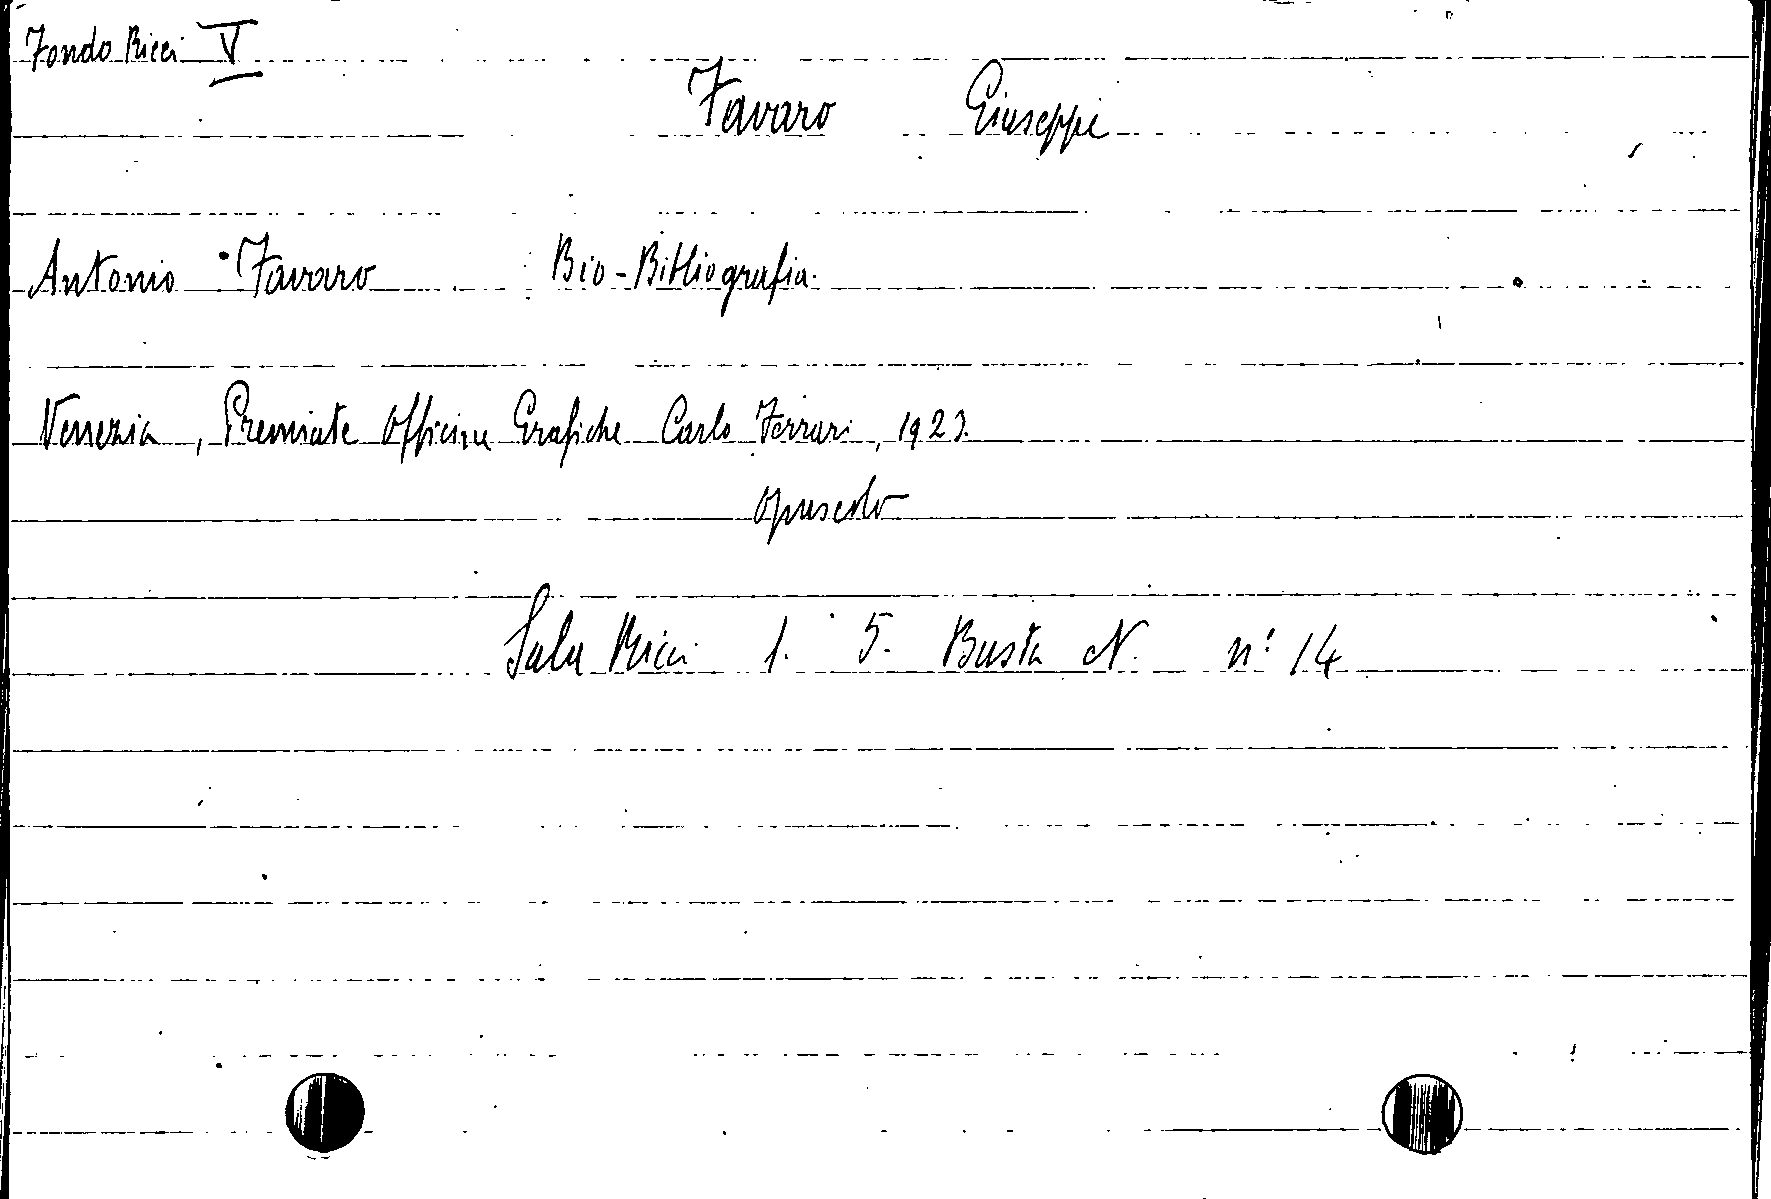 Fondo Ricci V
Favaro Giuseppe
Antonio Favaro Bio-Bibliografia.
Venezia, Premiate Officine Grafiche Carlo Ferrari, 1923.
opuscolo
Sala Ricci 1. 5. Busta N. n: 14